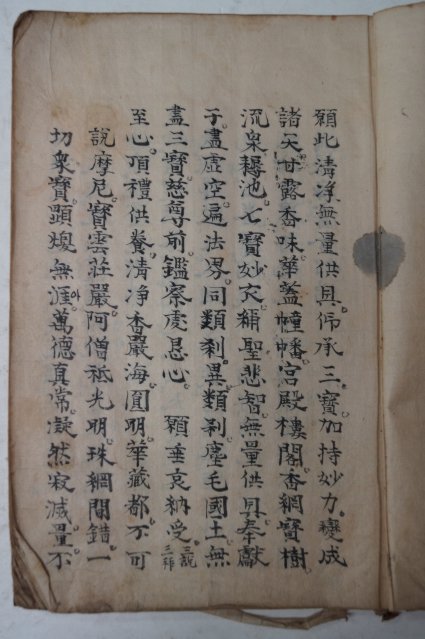 願此清淨無量供具仰承三寶加持妙力變成
諸天甘露香味華蓋幢幡宮殿樓閣香網寶樹
流泉池七寶妙衣稱聖悲智無量供具奉獻
于盡虛空遍法界同類刹異類刹塵毛國土無
盡三寶慈尊前鑑察虔恳心 願垂哀納受三說三拜
至心頂禮供養清淨香嚴海圓明華藏都不可
說摩尼寶雲莊嚴阿僧祗光明珠網間錯一
切衆寶顯煥無涯萬德真常凝然寂滅量不